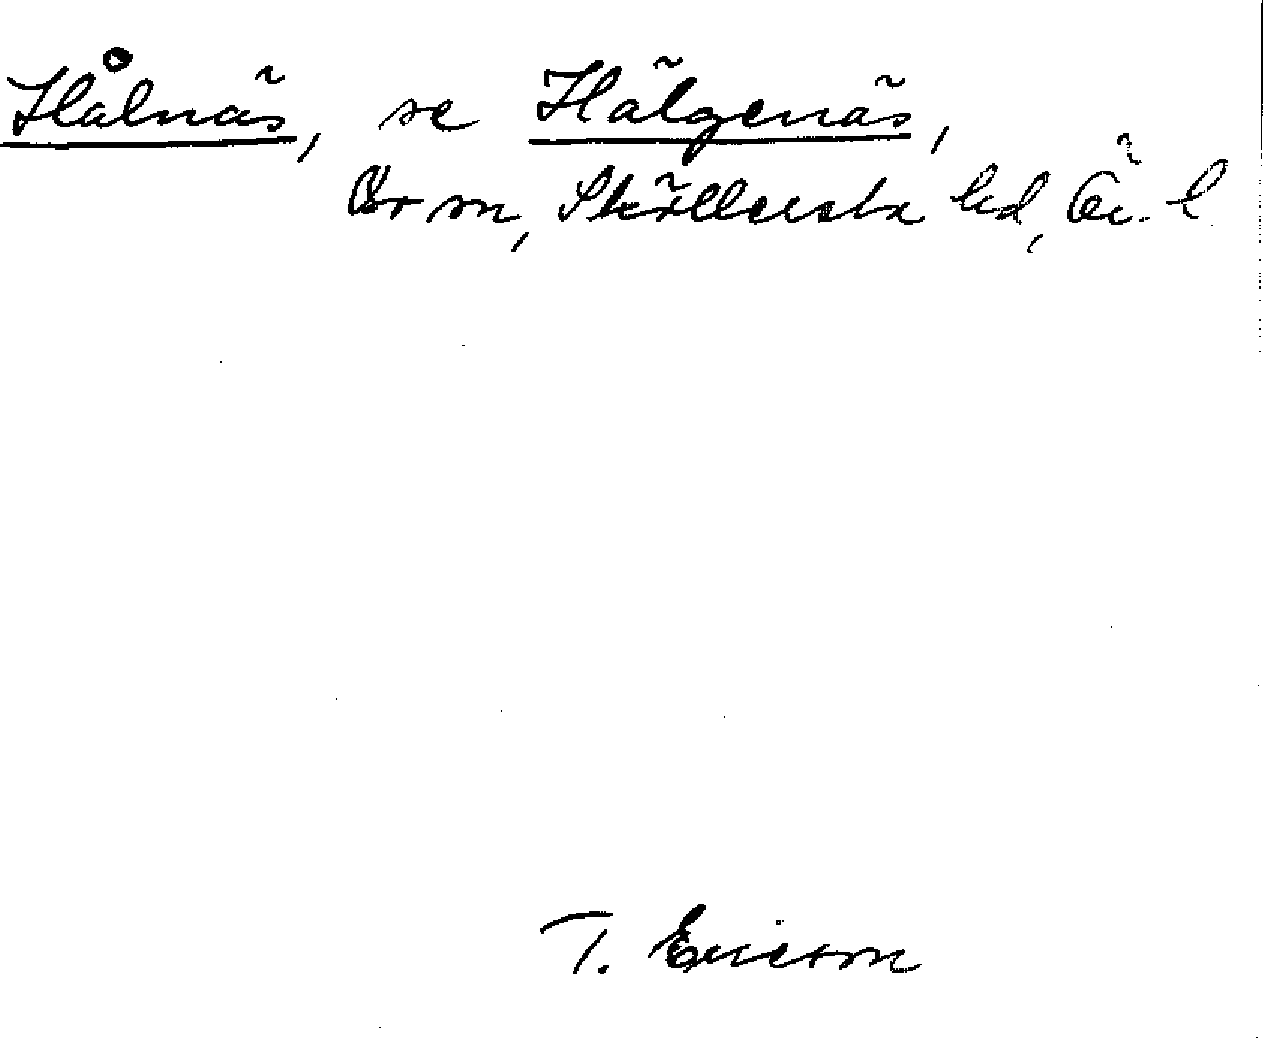 Hålnäs, se Hälgenäs,
Bo sn, Sköllersta hd, Ör. l
T. Ericson